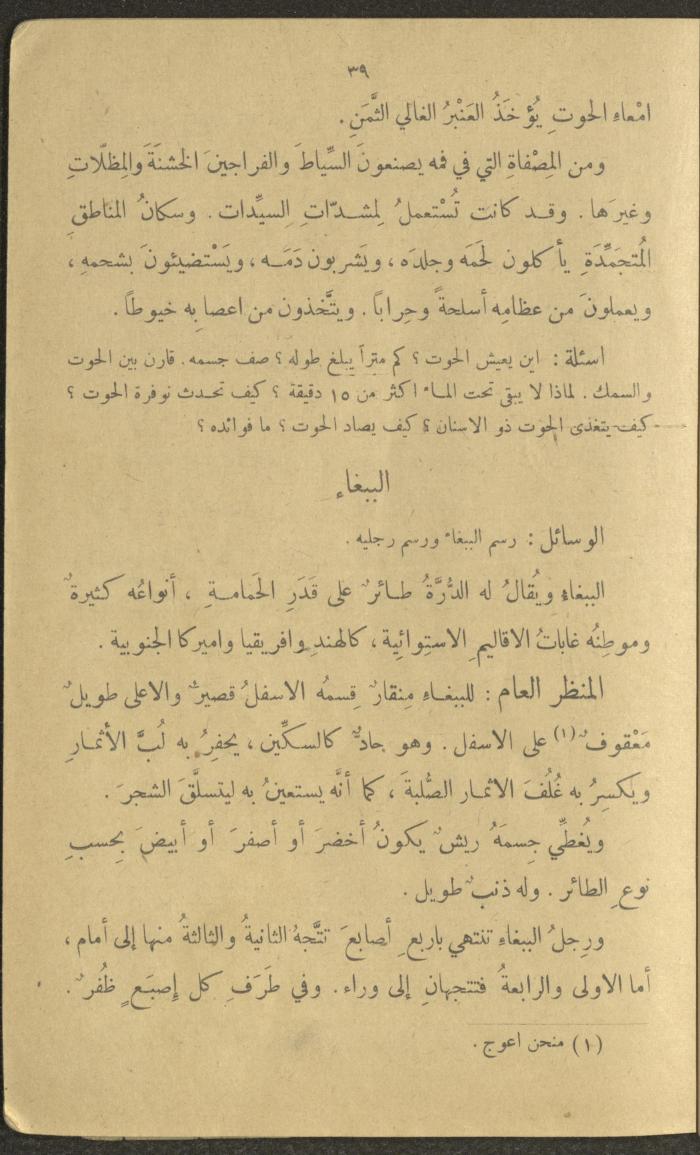 ٣٩
امْعاءِ الحوتِ يُؤخَذُ العَنْبرُ الغالي الثَّمَنِ.
ومن المِصْفاةِ التي في فمه يصنعونَ السِّياطَ والفراجينَ الخشنَةَ والمِظلّاتِ
وغيرَها. وقد كانت تُسْتعملُ لِمشدّاتِ السيِّدات. وسكانُ المناطقِ
المُتجمِّدَةِ يأكلون لَحمَه وجلدَه، ويَشربون دَمَه، ويَسْتضيئونَ بشحمهِ،
ويعملونَ من عظامِه أسلحةً وحِراباً. ويتَّخذون من اعصابه خيوطاً.
اسئلة: اين يعيش الحوت؟ كم متراً يبلغ طوله؟ صف جسمه. قارن بين الحوت
والسمك. لماذا لا يبقى تحت الماء اكثر من ١٥ دقيقة؟ كيف تحدث نوفرة الحوت؟
كيف يتغذى الحوت ذو الاسنان؟ كيف يصاد الحوت؟ ما فوائده؟
الببغاء
الوسائل: رسم الببغاء ورسم رجليه.
الببغاءِ ويُقالُ له الدُّرَّةُ طائرٌ على قَدَرِ الحَمامةِ، أنواعُه كثيرةٌ
وموطِنُه غاباتُ الاقاليمِ الاستِوائِية، كالهندِ وافريقيا واميركا الجنوبية.
المنظر العام: للببغاءِ مِنقارٌ قِسمهُ الاسفلُ قصيرٌ والاعلى طويلٌ
مَعْقوفٌ (١) على الاسفل. وهو حادٌّ كالسكِّين، يحفِرُ به لُبَّ الأثمارِ
ويكسِرُ به غُلُفَ الاثمار الصُّلبةَ، كما أنَّه يستعينُ به ليتسلَّقَ الشجرَ.
ويُغطِّي جِسمَهُ ريشٌ يكونُ أخضرَ أو أصفرَ أو أبيضَ بِحسبِ
نوعِ الطائر. وله ذنبٌ طويل.
ورِجلُ الببغاءِ تنتهي باربعِ أصابعَ تتَّجهُ الثانيةُ والثالثةُ منها إلى أمام،
أما الاولى والرابعةُ فتتجهانِ إلى وراء. وفي طَرَفِ كل إِصبَعٍ ظُفرٌ.
(١) منحن اعوج.